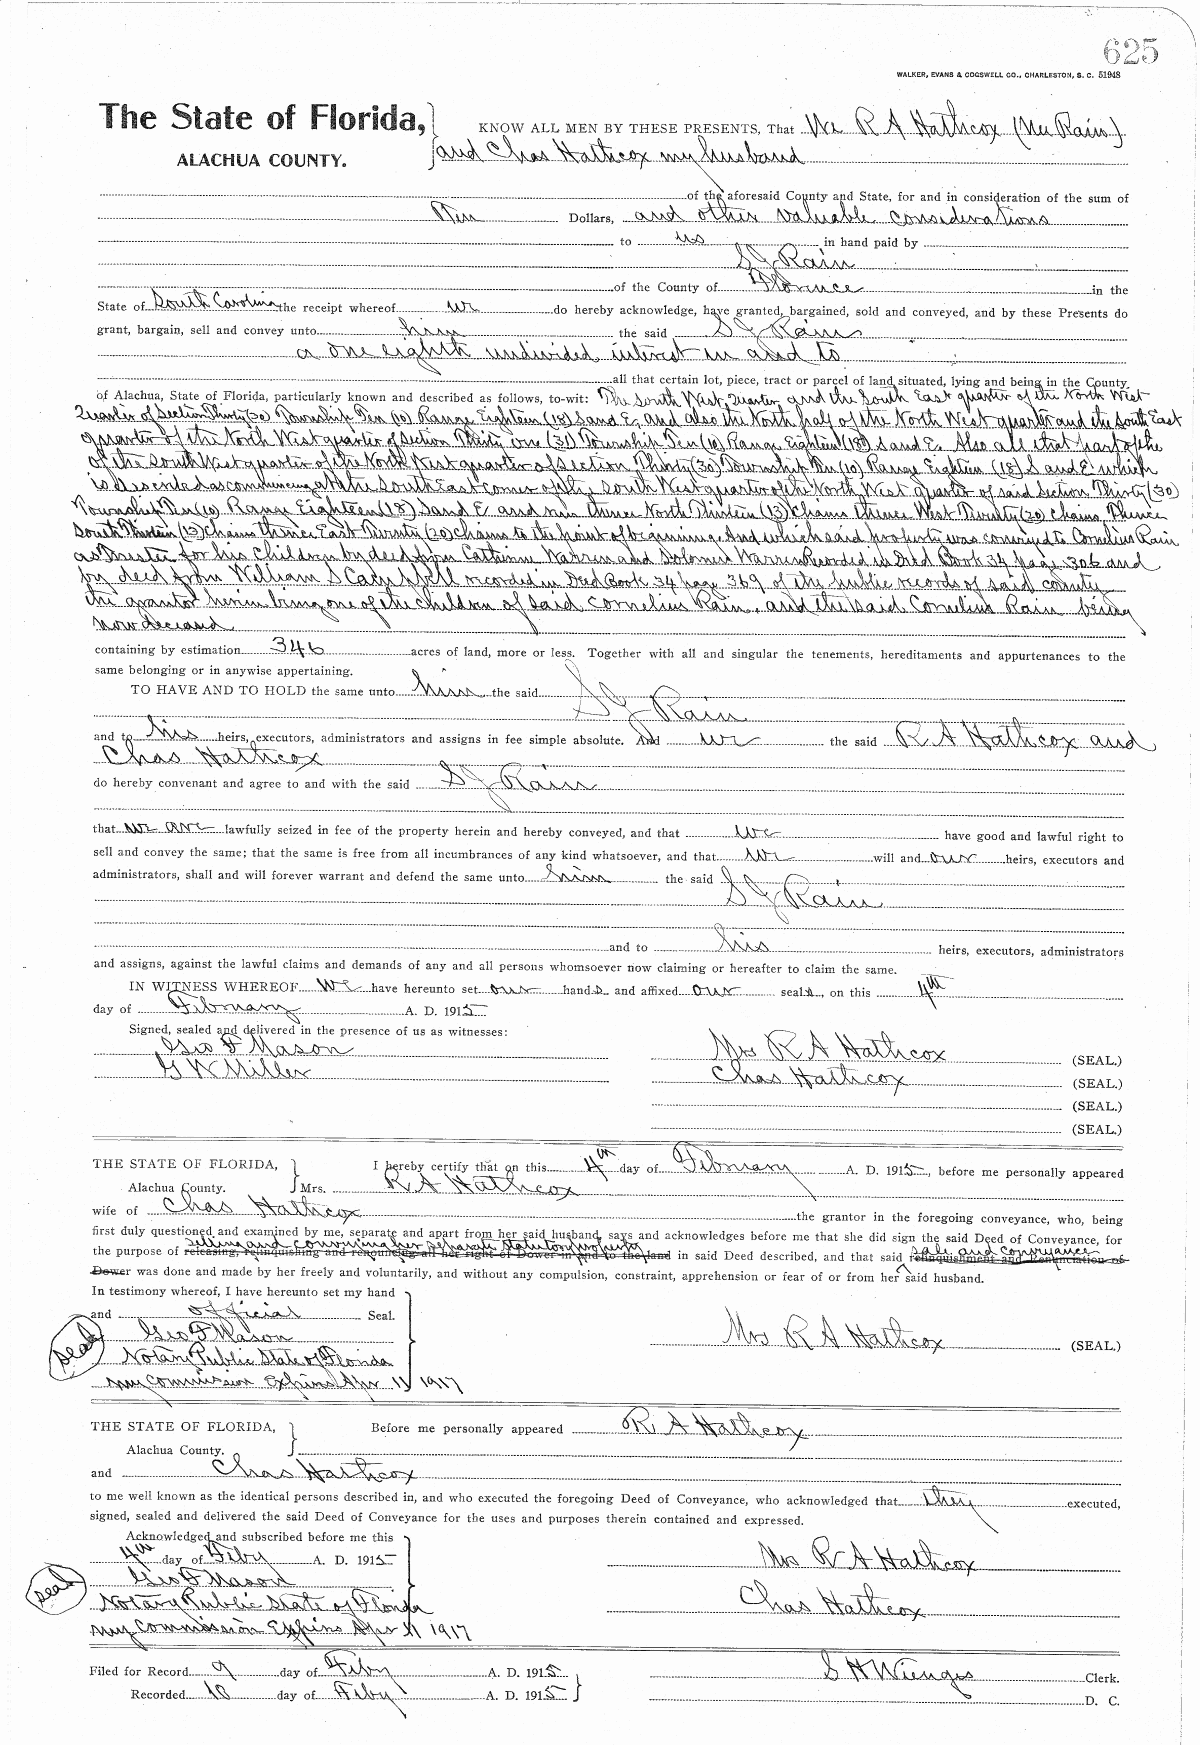 625
WALKER, EVANS & COGSWELL CO., CHARLESTON, S. C. 51948
The State of Florida,
ALACHUA COUNTY.
KNOW ALL MEN BY THESE PRESENTS, That We R A Hathcox (Nee Rain)
and Chas Hathcox my husband
of the aforesaid County and State, for and in consideration of the sum of
Ten Dollars, and other valuable considerations
to us in hand paid by
S J Rain
of the County of Florence in the
State of South Carolina the receipt whereof we do hereby acknowledge, have granted, bargained, sold and conveyed, and by these Presents do
grant, bargain, sell and convey unto him the said S J Rain
a one eighth undivided interest in and to
all that certain lot, piece, tract or parcel of land situated, lying and being in the County
of Alachua, State of Florida, particularly known and described as follows, to-wit: The South West Quarter and the South East quarter of the North West
Quarter of Section Thirty (30) Township Ten (10) Range Eighteen (18) S and E, and also the North half of the North West quarter and the South East
quarter of the North West quarter of Section Thirty one (31) Township Ten (10) Range Eighteen (18) S and E. Also all that part of the
of the South West quarter of the North West quarter of Section Thirty (30) Township Ten (10) Range Eighteen (18) S and E which
is described as commencing at the South East corner of the South West quarter of the North West quarter of said Section Thirty (30)
Township Ten (10) Range Eighteen (18) S and E and run thence North Thirteen (13) Chains thence West Twenty (20) chains, Thence
South Thirteen (13) Chains thence East Twenty (20) chains to the point of beginning. And which said property was conveyed to Cornelius Rain
as Trustee for his children by deed from Catherine Warren and Solomon Warren Recorded in Deed Book 34 page 306 and
by deed from William S Campbell recorded in Deed Book 34 page 369 of the public records of said county
the grantor herein being one of the children of said Cornelius Rain, and the said Cornelius Rain being
now deceased
containing by estimation 346 acres of land, more or less. Together with all and singular the tenements, hereditaments and appurtenances to the
same belonging or in anywise appertaining.
TO HAVE AND TO HOLD the same unto him the said
S J Rain
and to his heirs, executors, administrators and assigns in fee simple absolute. And we the said R A Hathcox and
Chas Hathcox
do hereby convenant and agree to and with the said S J Rain
that we are lawfully seized in fee of the property herein and hereby conveyed, and that we have good and lawful right to
sell and convey the same; that the same is free from all incumbrances of any kind whatsoever, and that we will and our heirs, executors and
administrators, shall and will forever warrant and defend the same unto him the said S J Rain
and to his heirs, executors, administrators
and assigns, against the lawful claims and demands of any and all persons whomsoever now claiming or hereafter to claim the same.
IN WITNESS WHEREOF we have hereunto set our hands and affixed our seals, on this 4th
day of February A. D. 1915
Signed, sealed and delivered in the presence of us as witnesses:
Geo F Mason
G W Miller
Mrs R A Hathcox (SEAL.)
Chas Hathcox (SEAL.)
(SEAL.)
(SEAL.)
THE STATE OF FLORIDA,
Alachua County.
I hereby certify that on this 4th day of February A. D. 1915, before me personally appeared
Mrs. R A Hathcox
wife of Chas Hathcox the grantor in the foregoing conveyance, who, being
first duly questioned and examined by me, separate and apart from her said husband, says and acknowledges before me that she did sign the said Deed of Conveyance, for
selling and conveying her separate statutory property sale and conveyance
the purpose of releasing, relinquishing and renouncing all her right of Dower in and to the land in said Deed described, and that said relinquishment and renunciation of
Dower was done and made by her freely and voluntarily, and without any compulsion, constraint, apprehension or fear of or from her said husband.
In testimony whereof, I have hereunto set my hand
and official Seal.
Geo F Mason
seal
Notary Public State of Florida
my commission Expires Apr 11 1917
Mrs R A Hathcox (SEAL)
THE STATE OF FLORIDA,
Alachua County.
Before me personally appeared R A Hathcox
and Chas Hathcox
to me well known as the identical persons described in, and who executed the foregoing Deed of Conveyance, who acknowledged that they executed,
signed, sealed and delivered the said Deed of Conveyance for the uses and purposes therein contained and expressed.
Acknowledged and subscribed before me this
4th day of Feby A. D. 1915
Geo F Mason
seal
Notary Public State of Florida
my Commission Expires Apr 11 1917
Mrs R A Hathcox
Chas Hathcox
Filed for Record 9 day of Feby A. D. 1915
Recorded 10 day of Feby A. D. 1915
S H Wienges Clerk.
D. C.